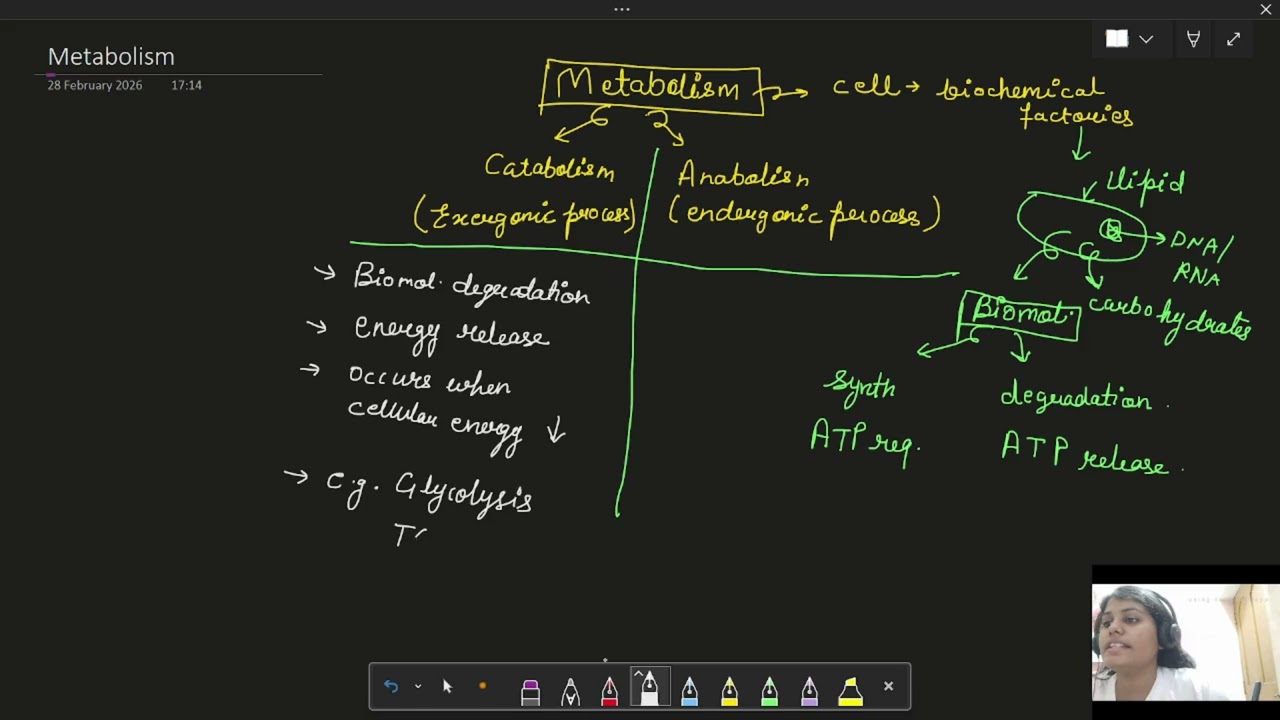 Metabolism
28 February 2026 17:14
Metabolism → cell → biochemical
factories
Catabolism
(Exergonic process)
Anabolism
(endergonic process)
lipid
DNA/
RNA
Biomol.
carbohydrates
synth
ATP req.
degradation.
ATP release.
→ Biomol. degradation
→ energy release
→ occurs when
cellular energy ↓
→ e.g. Glycolysis
TC